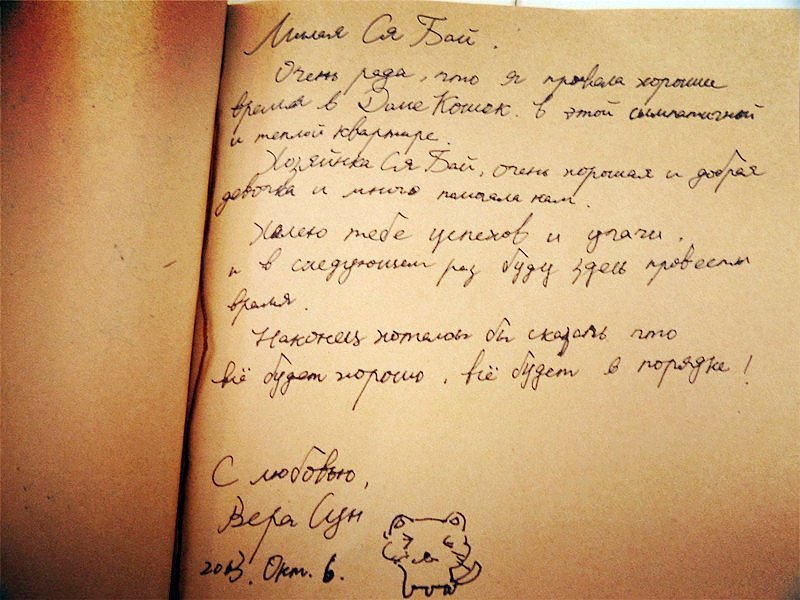 Милая Ся Бай.
Очень рада, что я провела хорошие
время в Доме Кошок. в этой сымпатичной
и теплой квартире.
Хозяйнка Ся Бай, очень хорошая и добрая
девочка и много помогала нам.
Желею тебе успехов и удачи.
и в следующем раз буду здесь провести
время.
Наконец хотелось бы сказать что
всё будет хорошо, всё будет в порядке!
С любовью,
Вера Сун
2013. Окт. 6.